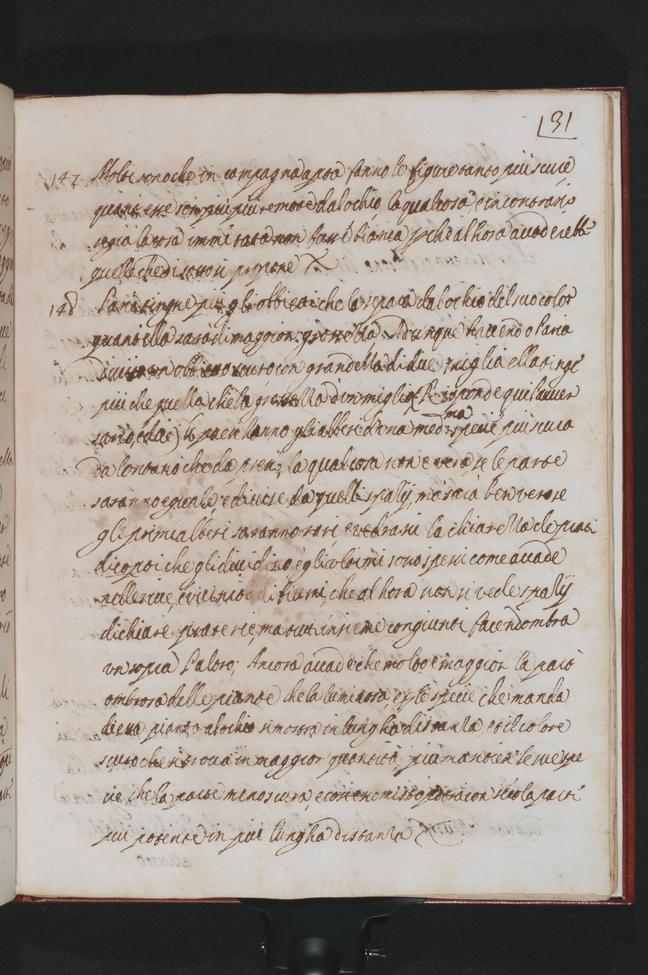 131
147 Molti sono che in campagna aperta fanno le figure tanto più scure
quanto esse son più remote dal'ochio, la qual cosa è in contrario
se già la cosa immitata non fusse bianca perche al hora accaderebbe
quello che di sotto si propone
148 L'aria tinge più gli obbietti che la separa dal'ochio del suo color
quanto ella sarà di maggior grossezza. Adunque havendo l'aria
diviso un obbietto scuro con grandezza di due miglia ella tinge
più che quella che ha grossezza d'un miglio. Risponde qui l'aver
sario et dice) li paesi hanno gli alberi d'una medesima spetie più scura
da lontano che da presso, la qual cosa non è vera, se le piante
saranno eguale e divise da equali spatij, ma sarà ben vero se
gli primi alberi saranno rari e vedrassi la chiarezza de prati
di sotto che gli dividino e gli ultimi sono spessi come accade
nelle rive e vicinità di fiumi, che al hora non si vede spatij
di chiare praterie, ma tutti insieme congiunti facendo ombra
un sopra l'altro; Ancora accade che molto è maggior la parte
ombrosa delle piante che la luminosa, e le spetie che manda
di se a pianta al ochio si mostra in lungha distanza et il colore
scuro che si trova in maggior quantità più mantien le sue spe
cie che la parte men oscura, e così esso misto porta con seco la parte
più potente in più lungha distanza